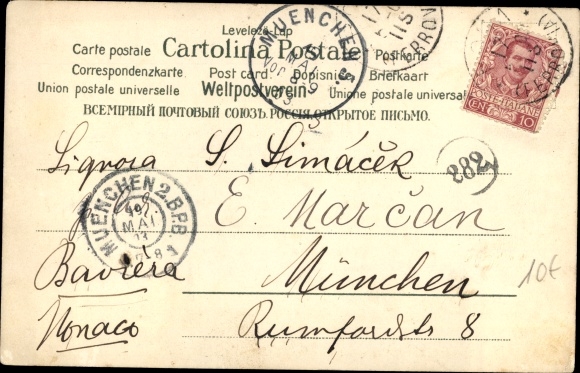 Levelező-Lap
Carte postale Cartolina Postale Postkarte
Correspondenzkarte Post card Dopisnice Briefkaart
Union postale universelle Weltpostverein Unione postale universale
ВСЕМІРНЫЙ ПОЧТОВЫЙ СОЮЗЪ. РОССІЯ. ОТКРЫТОЕ ПИСЬМО.
MUENCHEN
MAI
Vor 8-9
03
POSTE ITALIANE
CENT 10
(FERROVIA)
Signora S. Šimáček
282
MUENCHEN 2.B.P.B.
MAI
E. Marčan
Baviera München
10€
Monaco Rumfordstr 8